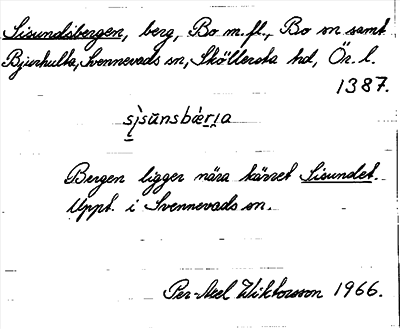 Sisundsbergen, berg, Bo m.fl., Bo sn samt
Bjurhulta, Svennevads sn, Sköllersta hd, Ör. l.
1387.
sìsùnsbæ̀rɩa
Bergen ligger nära kärret Sisundet.
Uppt. i Svennevads sn.
Per-Axel Wiktorsson 1966.